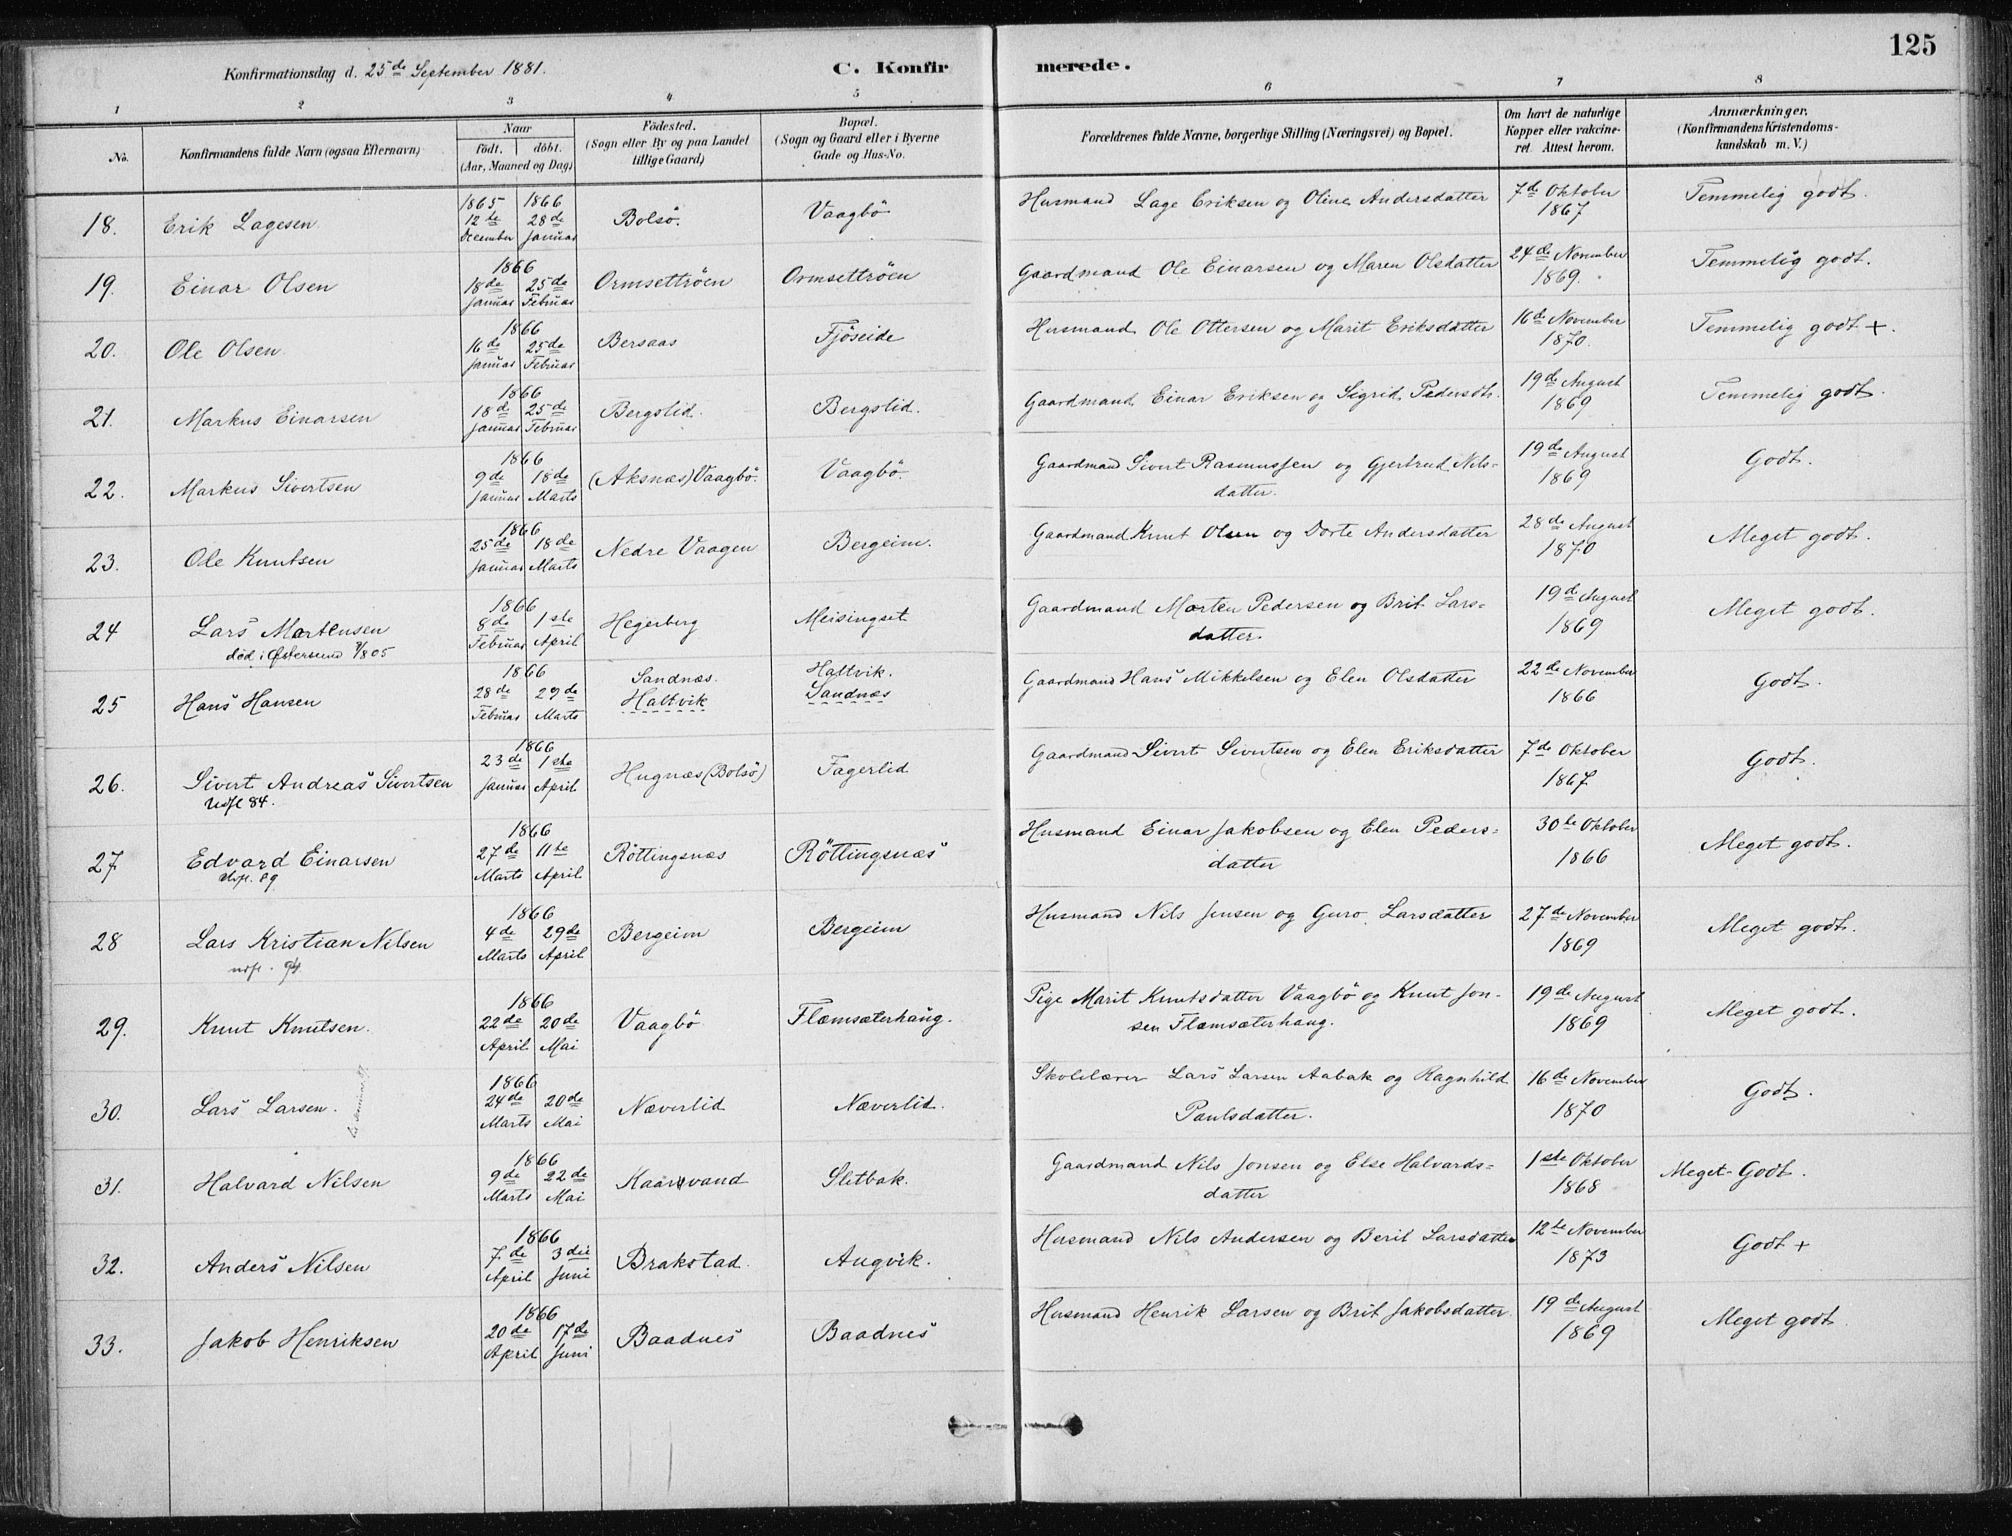 125
Konfirmationsdag d. 25de September 1881.
C. Konfirmerede.
1 2 3 4 5 6 7 8
No.
Konfirmandens fulde Navn (ogsaa Efternavn)
Naar
födt. döbt.
(Aar, Maaned og Dag)
Födested.
(Sogn eller By og paa Landet
tillige Gaard)
Bopæl.
(Sogn og Gaard eller i Byerne
Gade og Hus-No.
Forældrenes fulde Navne, borgerlige Stilling (Næringsvei) og Bopæl.
Om havt de naturlige
Kopper eller vakcine-
ret. Attest herom.
Anmærkninger.
(Konfirmandens Kristendoms-
kundskab m. V.)
18. Erik Lagesen 1865 12te December 1866 28de Januar Bolsö. Vaagbö Husmand Lage Eriksen og Oline Andersdatter 7de Oktober 1867 Temmelig godt.
19. Einar Olsen 1866 18de Januar 25de Februar Ormsettröen Ormsettröen Gaardmand Ole Einarsen og Maren Olsdatter 24de November 1869. Temmelig godt.
20. Ole Olsen 1866 16de Januar 25de Februar Bersaas Fjöseide Husmand Ole Ottersen og Marit Eriksdatter 16de November 1870. Temmelig godt +.
21. Markus Einarsen 1866 18de Januar 25de Februar Bergslid. Bergslid. Gaardmand Einar Eriksen og Sigrid Pedersdtr. 19de August 1869 Temmelig godt.
22. Markus Sivertsen 1866 9de Januar 18de Marts (Aksnæs) Vaagbö. Vaagbö. Gaardmand Sivert Rasmussen og Gjertrud Nils=
datter. 19de August 1869 Godt.
23. Ole Knutsen 1866 25de Januar 18de Marts Nedre Vaagen Bergeim. Gaardmand Knut Olsen og Dorte Andersdatter 28de August 1870 Meget godt.
24 Lars Martensen 1866 8de Februar 1ste April Hegerberg Meisingset Gaardmand Morten Pedersen og Brit Lars=
datter. 19de August 1869 Meget godt.
død i Østersund 9/8 05
25 Hans Hansen 1866 28de Februar 29de Marts Sandnæs. Haltvik Haltvik. Sandnæs Gaardmand Hans Mikkelsen og Elen Olsdatter 22de November 1866 Godt.
26. Sivert Andreas Sivertsen 1866 23de Januar 1ste April Hugnæs (Bolsö) Fagerlid Gaardmand Sivert Sivertsen og Elen Eriksdatter 7de Oktober 1867. Godt.
Udfl 84.
27 Edvard Einarsen 1866 27de Marts 11te April Röttingsnæs Röttingsnæs Husmand Einar Jakobsen og Elen Peders=
datter 30te Oktober 1866 Meget godt.
Udfl. 89
28 Lars Kristian Nilsen 1866 4de Marts 29de April Bergeim Bergeim Husmand Nils Jensen og Guro Larsdatter 27de November 1869 Meget godt.
udfl. 94.
29. Knut Knutsen. 1866 22de April 20de Mai Vaagbö Flæmsæterhaug. Pige Marit Knutsdatter Vaagbö og Knut Jon-
sen Flæmsæterhaug. 19de August 1869 Meget godt.
30. Lars Larsen. 1866 24de Marts 20de Mai Næverlid Næverlid. Skolelærer Lars Larsen Aabak og Ragnhild
Paulsdatter. 16de November 1870 Godt.
31. Halvard Nilsen 1866 9de Marts 22de Mai Kaarvand Sletbak. Gaardmand Nils Jonsen og Else Halvards=
datter 1ste Oktober 1868 Meget-Godt.
32. Anders Nilsen 1866 7de April 3die Juni Brakstad. Angvik. Husmand Nils Andersen og Berit Larsdatter 12te November 1873 Godt +
33. Jakob Henriksen 1866 20de April 17de Juni Baadnes Baadnes Husmand Henrik Larsen og Brit Jakobsdatter 19de August 1869 Meget godt.